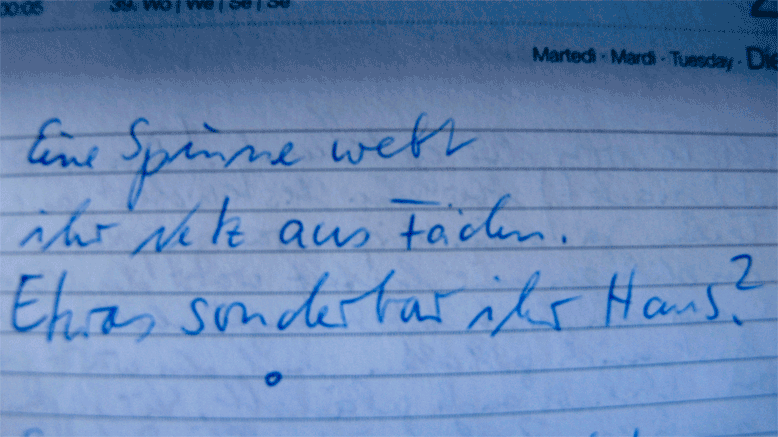 00:05 39. Wo | We | Se | Se
Martedì · Mardi · Tuesday · Die
Eine Spinne webt
ihr Netz aus Fäden.
Etwas sonderbar ihr Haus?